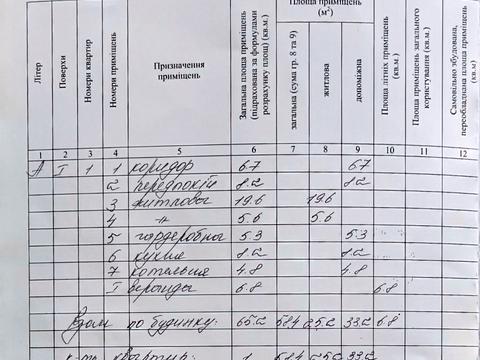 Літер
Поверхи
Номери квартир
Номери приміщень
Призначення приміщень
Загальна площа приміщень (підрахована за формулами розрахунку площ) (кв.м.)
Площа приміщень (м²)
загальна (сума гр. 8 та 9)
житлова
допоміжна
Площа літніх приміщень (кв.м)
Площа приміщень загального користування (кв.м.)
Самовільно збудована, переобладнана площа приміщень (кв.м.)
1 2 3 4 5 6 7 8 9 10 11 12
А I 1 1 коридор 6.7 6.7
2 передпокій 8.2 8.2
3 житлова 19.6 19.6
4 -"- 5.6 5.6
5 гардеробна 5.3 5.3
6 кухня 8.2 8.2
7 котельня 4.8 4.8
I веранда 6.8 6.8
Всього по будинку: 65.2 58.4 25.2 33.2 6.8
к-ть квартир: 1 58.4 25.2 33.2